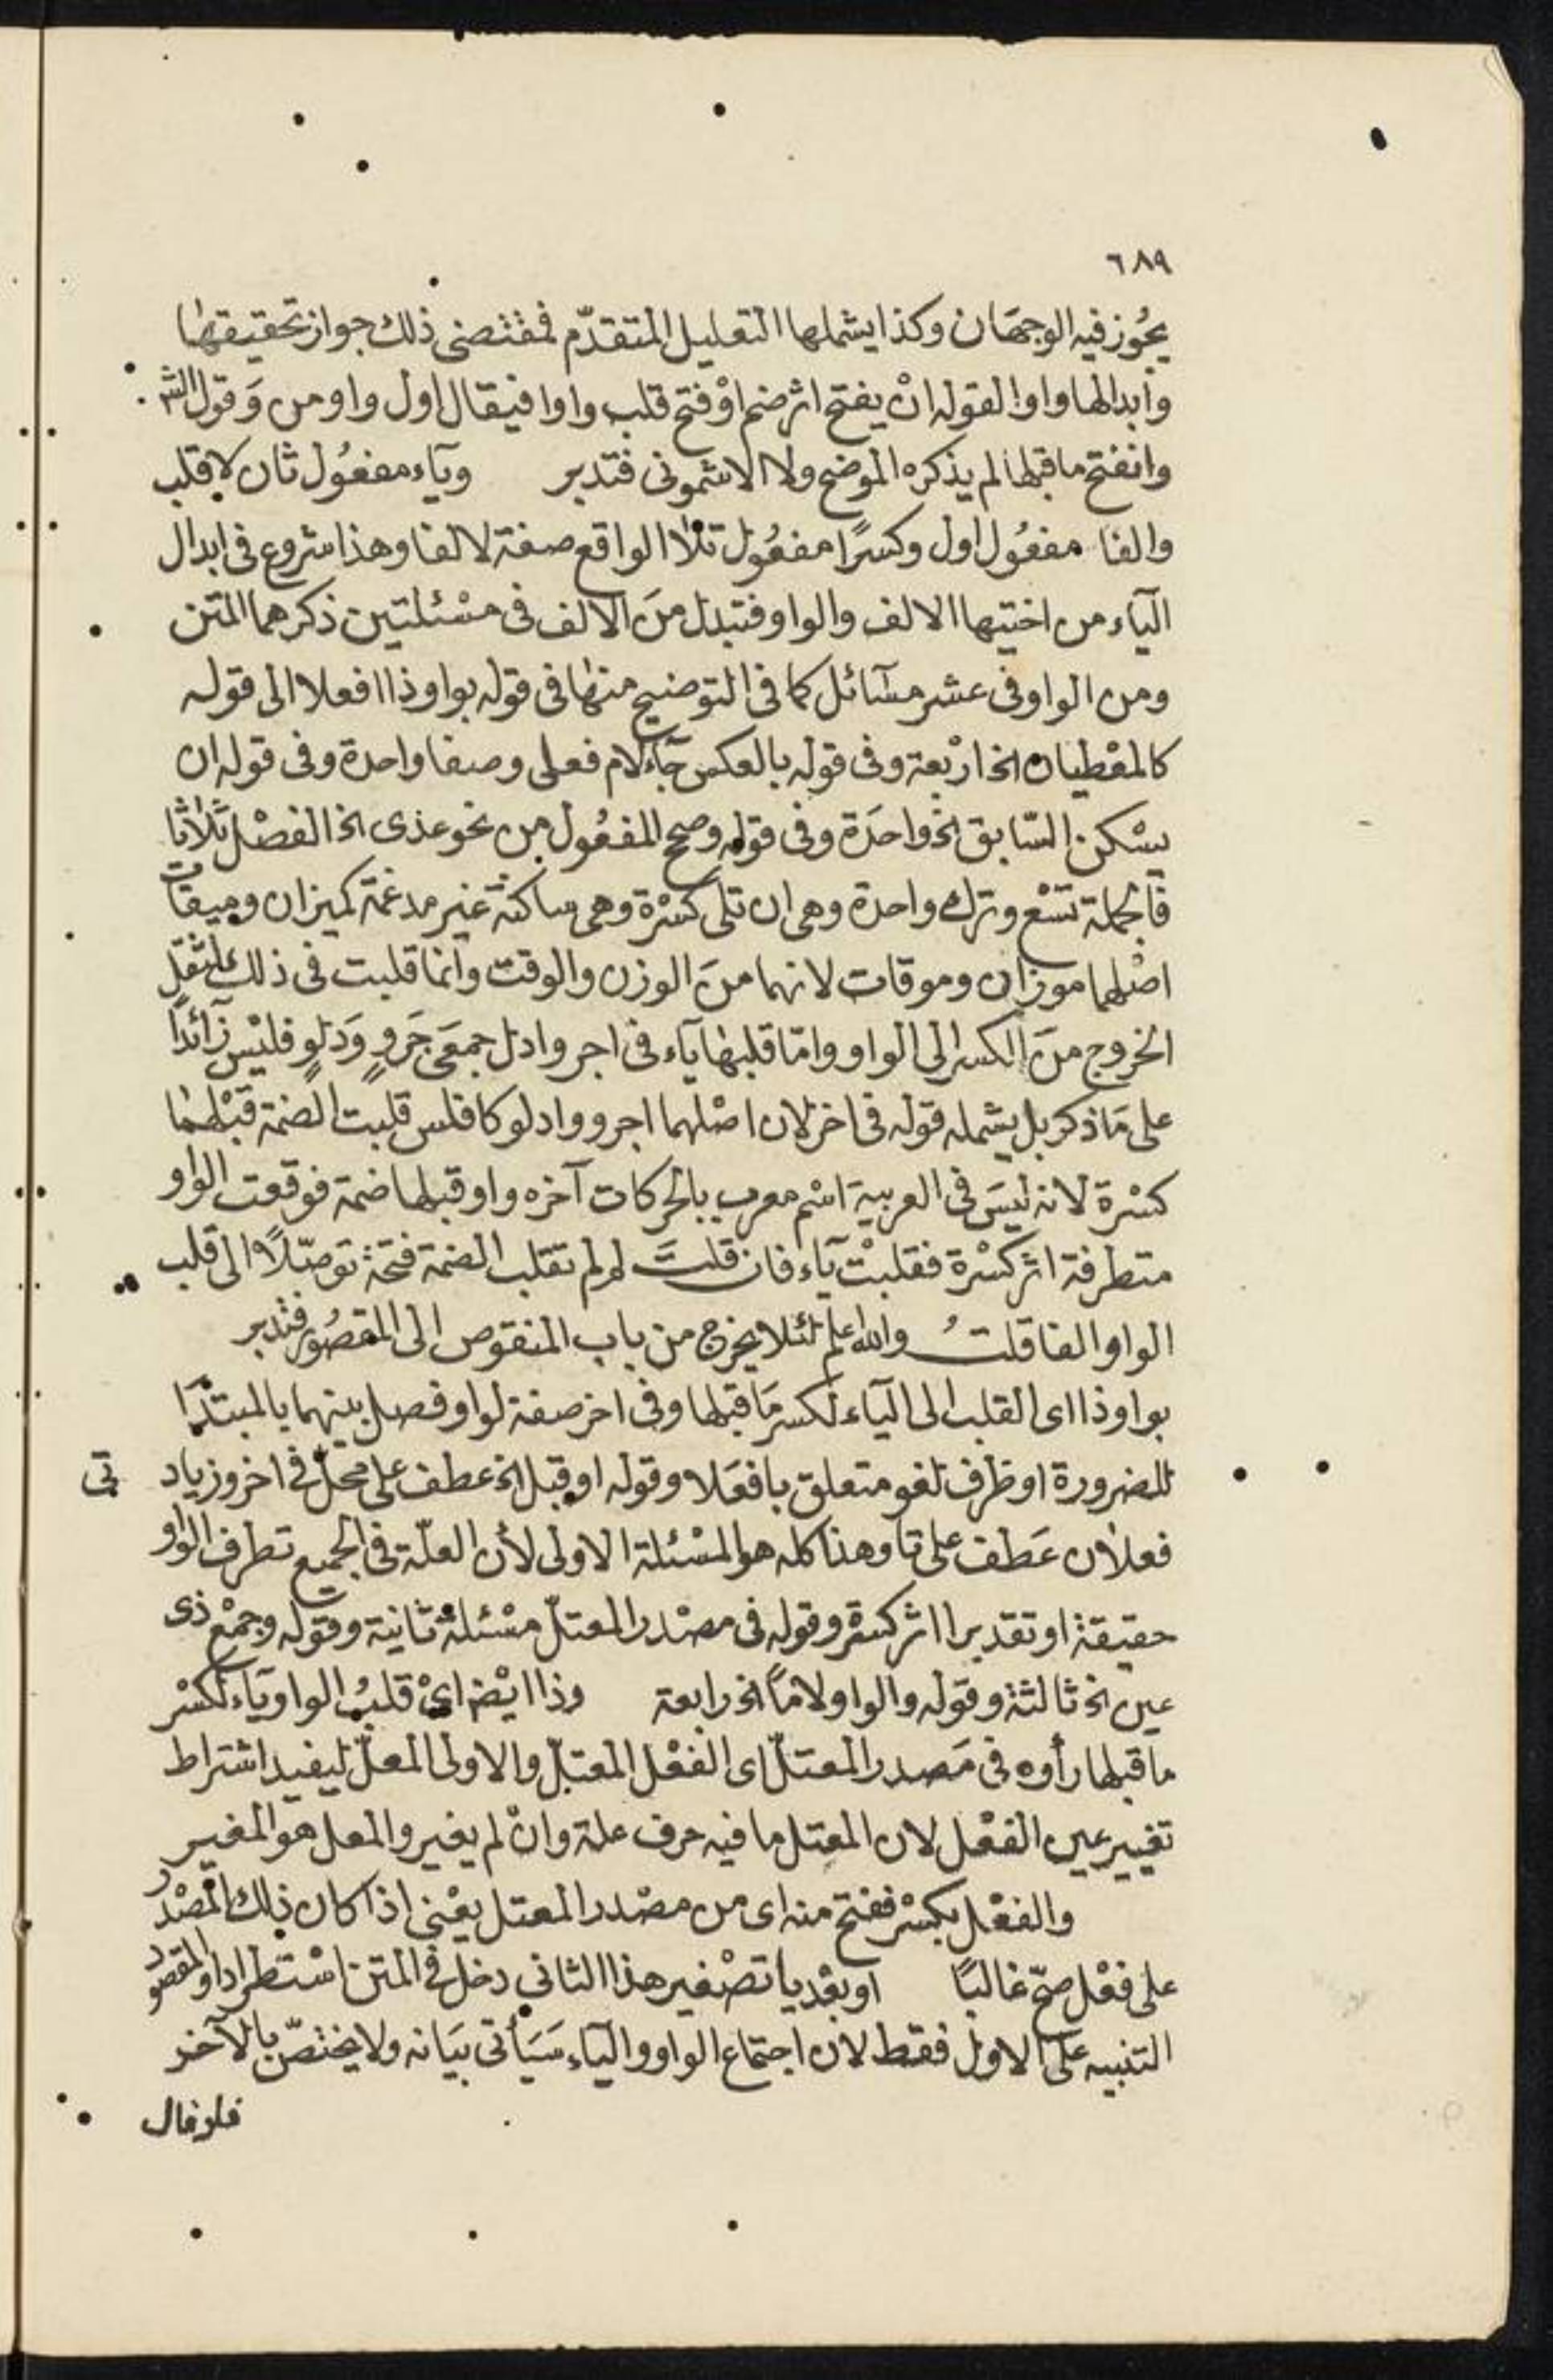 ٦٨٩
يجُوز فيه الوجهَان وكذا يشملها التعليل المتقدّم فمقتضى ذلك جواز تحقيقها
وابدالها واوا لقوله انْ يفتح اثر ضم اوْ فتح قلب واوا فيقال اول واو من وَقول الش
وانفتح ما قبلها لم يذكره الموضح ولا الاشمونى فتدبر وياء مفعُول ثان لاقلب
والفا مفعُول اول وكسرًا مفعُول تلا الواقع صفة لالفا وهذا شروع فى ابدال
اليآء من اختيها الالف والواو فتبدل منَ الالف فى مسْئلتين ذكرهما المتن
ومن الواو فى عشر مسَآئل كما فى التوضيح منها فى قوله بواو ذا افعلا الى قوله
كالمعْطيان الخ ارْبعة وفى قوله بالعكس جآء لام فعلى وصفا واحدة وفى قوله ان
يسْكن السّابق الخ واحدَة وفى قوله وصحح المفعُول من نحو عدى الخ الفصْل ثلاثا
فالجملة تسْع وترك واحدة وهى ان تلى كسْرة وهى ساكنة غير مدغمة كميزان وميقات
اصْلهما موزان وموقات لانهما منَ الوزن والوقت وانما قلبت فى ذلك لثقل
الخروج منَ الكسر الى الواو وامّا قلبها ياء فى اجر وادل جمعَى جَروٍ وَدلوٍ فليْس زآئداً
على مَا ذكر بل يشمله قوله فى اخر لان اصْلهما اجرو وادلو كافلس قلبت الضمة قبْلهما
كسْرة لانه ليسَ فى العربية اسْم معرب بالحركات آخره واو قبلها ضمة فوقعت الواو
متطرفة اثر كسْرة فقلبتْ يآء فان قلتَ لم لم تقلب الضمة فتحة توصّلاً الى قلب
الواو الفا قلتُ والله اعلم لئلا يخرج من باب المنقوص الى المقصُور فتدبر
بواو ذا اى القلب الى اليآء لكسر مَا قبلها وفى اخر صفة لواو فصل بينهما بالمبتدَا
للضرورة او ظرف لغو متعلق بافعَلا وقوله او قبل الخ عطف على محلّ فى اخر وزيادتى
فعلان عَطف على تا وهذا كله هو المسْئلة الاولى لأن العلّة فى الجميع تطرف الواو
حقيقة او تقديرا اثر كسرة وقوله فى مصْدر المعتلّ مسْئلة ثانية وقوله وجمْع ذى
عين الخ ثالثة وقوله والواو لامًا الخ رابعة وذا ايْضا اىْ قلبُ الواو يآء لكسْر
ما قبلها رأوه فى مَصدر المعتلّ اى الفعْل المعتلّ والاولى المعلّ ليفيد اشتراط
تغيير عين الفعْل لان المعتل ما فيه حرف علة وانْ لم يغير والمعل هو المغير
والفعْل بكسْر ففتح منه اى من مصْدر المعتل يعْنى اذا كان ذلك المصْدر
على فعْل صحّ غالبًا او بعْد يا تصْغير هذا الثانى دخل فى المتن اسْتطرادا والمقصود
التنبيه على الاول فقط لان اجتماع الواو واليآء سَيَأتى بيَانه ولا يختصّ بالآخر
فلو قال